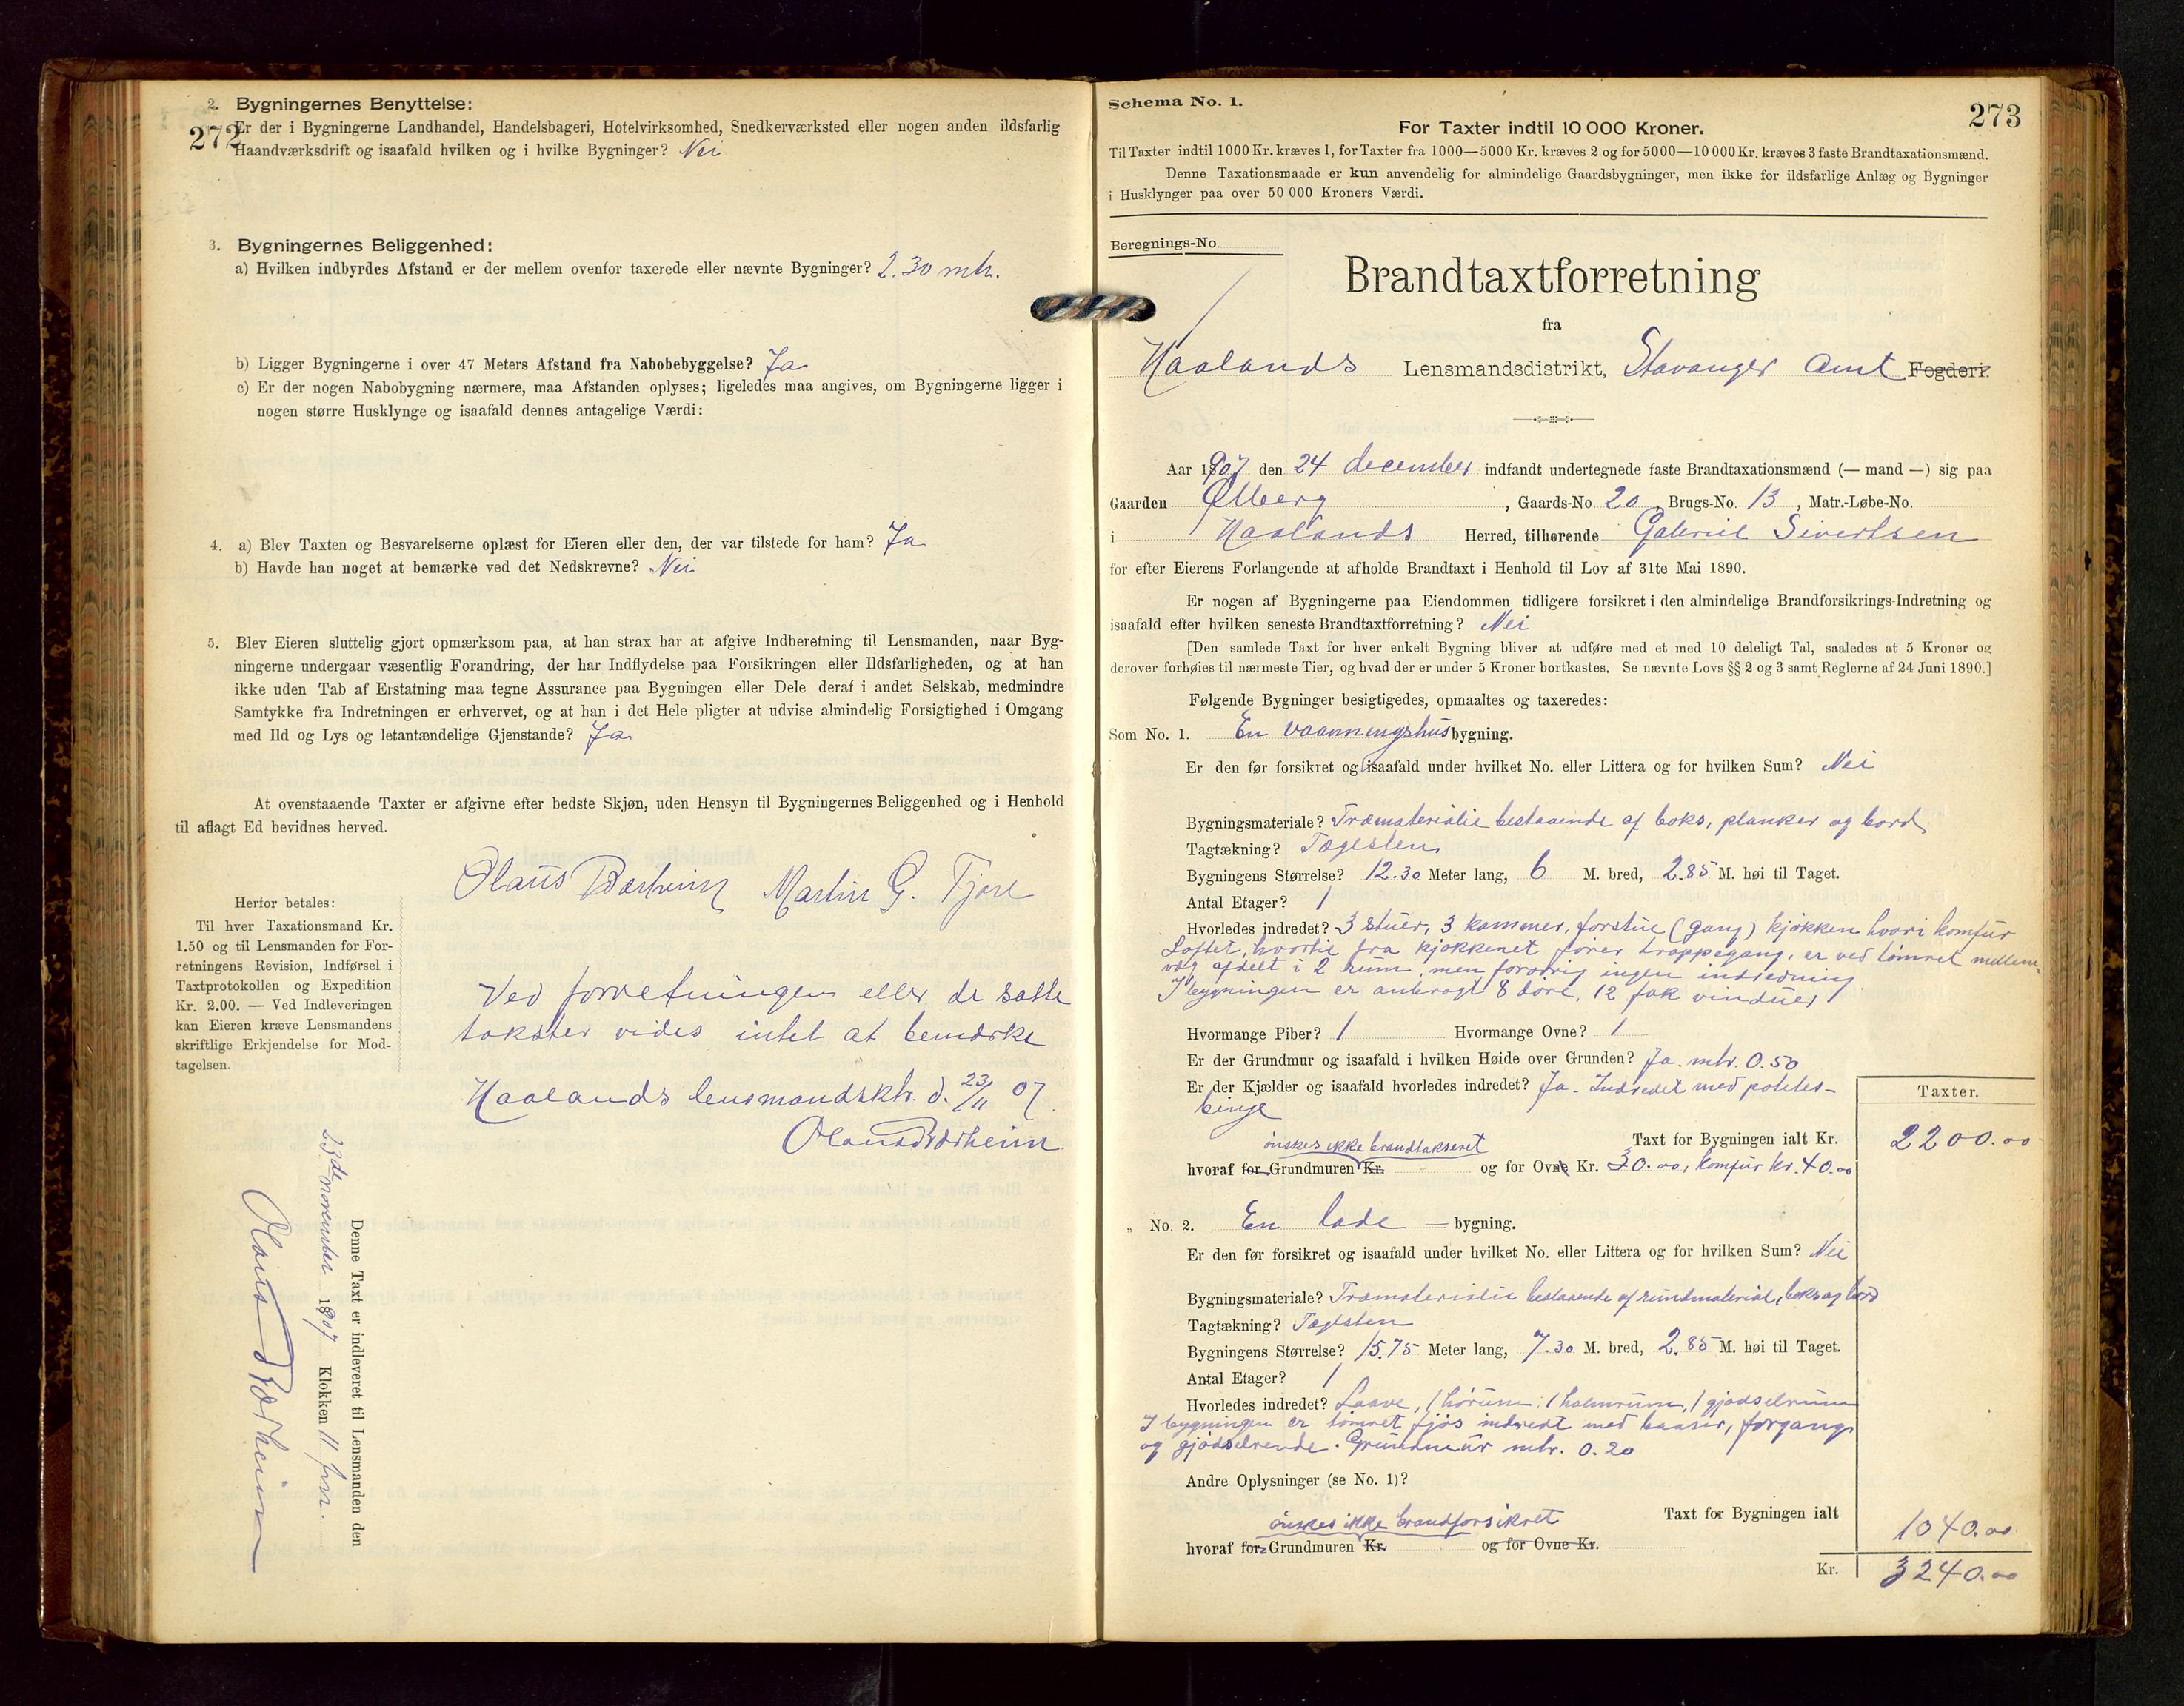 272
2. Bygningernes Benyttelse:
Er der i Bygningerne Landhandel, Handelsbageri, Hotelvirksomhed, Snedkerværksted eller nogen anden ildsfarlig
Haandværksdrift og isaafald hvilken og i hvilke Bygninger? Nei
3. Bygningernes Beliggenhed:
a) Hvilken indbyrdes Afstand er der mellem ovenfor taxerede eller nævnte Bygninger? 2.30 mtr.
b) Ligger Bygningerne i over 47 Meters Afstand fra Nabobebyggelse? Ja
c) Er der nogen Nabobygning nærmere, maa Afstanden oplyses; ligeledes maa angives, om Bygningerne ligger i
nogen større Husklynge og isaafald dennes antagelige Værdi:
4. a) Blev Taxten og Besvarelserne oplæst for Eieren eller den, der var tilstede for ham? Ja
b) Havde han noget at bemærke ved det Nedskrevne? Nei
5. Blev Eieren sluttelig gjort opmærksom paa, at han strax har at afgive Indberetning til Lensmanden, naar Byg-
ningerne undergaar væsentlig Forandring, der har Indflydelse paa Forsikringen eller Ildsfarligheden, og at han
ikke uden Tab af Erstatning maa tegne Assurance paa Bygningen eller Dele deraf i andet Selskab, medmindre
Samtykke fra Indretningen er erhvervet, og at han i det Hele pligter at udvise almindelig Forsigtighed i Omgang
med Ild og Lys og letantændelige Gjenstande? Ja
At ovenstaaende Taxter er afgivne efter bedste Skjøn, uden Hensyn til Bygningernes Beliggenhed og i Henhold
til aflagt Ed bevidnes herved.
Olaus Bærheim Martin G. Tjore
Herfor betales:
Til hver Taxationsmand Kr.
1.50 og til Lensmanden for For-
retningens Revision, Indførsel i
Taxtprotokollen og Expedition
Kr. 2.00. — Ved Indleveringen
kan Eieren kræve Lensmandens
skriftlige Erkjendelse for Mod-
tagelsen.
Ved forretningen eller de satte
takster vides intet at bemærke
Haalands lensmandsktr. d. 23/11 07.
Olaus Bærheim
Denne Taxt er indleveret til Lensmanden den
23de november 1907 Klokken 11 fm.
Olaus Bærheim
273
Schema No. 1.
For Taxter indtil 10 000 Kroner.
Til Taxter indtil 1000 Kr. kræves 1, for Taxter fra 1000—5000 Kr. kræves 2 og for 5000—10 000 Kr. kræves 3 faste Brandtaxationsmænd.
Denne Taxationsmaade er kun anvendelig for almindelige Gaardsbygninger, men ikke for ildsfarlige Anlæg og Bygninger
i Husklynger paa over 50 000 Kroners Værdi.
Beregnings-No.
Brandtaxtforretning
fra
Haalands Lensmandsdistrikt, Stavanger Amt Fogderi.
Aar 1907 den 24 december indfandt undertegnede faste Brandtaxationsmænd (— mand —) sig paa
Gaarden Ølberg, Gaards-No. 20, Brugs-No. 13, Matr.-Løbe-No.
i Haalands Herred, tilhørende Gabriel Sivertsen
for efter Eierens Forlangende at afholde Brandtaxt i Henhold til Lov af 31te Mai 1890.
Er nogen af Bygningerne paa Eiendommen tidligere forsikret i den almindelige Brandforsikrings-Indretning og
isaafald efter hvilken seneste Brandtaxtforretning? Nei
[Den samlede Taxt for hver enkelt Bygning bliver at udføre med et med 10 deleligt Tal, saaledes at 5 Kroner og
derover forhøies til nærmeste Tier, og hvad der er under 5 Kroner bortkastes. Se nævnte Lovs §§ 2 og 3 samt Reglerne af 24 Juni 1890.]
Følgende Bygninger besigtigedes, opmaaltes og taxeredes:
Som No. 1. En vaaningshus bygning.
Er den før forsikret og isaafald under hvilket No. eller Littera og for hvilken Sum? Nei
Bygningsmateriale? Træmaterialie bestaaende af boks, planker og bord
Tagtækning? Tagsten
Bygningens Størrelse? 12.30 Meter lang, 6 M. bred, 2.85 M. høi til Taget.
Antal Etager? 1
Hvorledes indredet? 3 stuer, 3 kammer, forstue (gang) kjøkken hvori komfur
Loftet, hvortil fra kjøkkenet fører trappegang, er ved tømret mellem-
væg afdelt i 2 rum, men forøvrig ingen indredning
I bygningen er anbragt 8 døre, 12 fak vinduer
Hvormange Piber? 1 Hvormange Ovne? 1
Er der Grundmur og isaafald i hvilken Høide over Grunden? Ja. mtr. 0.50
Er der Kjælder og isaafald hvorledes indredet? Ja. Indredet med potetes-
binge
Taxter.
ønskes ikke brandtakseret Taxt for Bygningen ialt Kr. 2200.00
hvoraf for Grundmuren Kr. og for Ovne Kr. 30.00, komfur kr. 40.00
„ No. 2. En lade — bygning.
Er den før forsikret og isaafald under hvilket No. eller Littera og for hvilken Sum? Nei
Bygningsmateriale? Træmaterialie bestaaende af rundmaterial, boks og bord
Tagtækning? Tagsten
Bygningens Størrelse? 15.75 Meter lang, 7.30 M. bred, 2.85 M. høi til Taget.
Antal Etager? 1
Hvorledes indredet? Laave, 1 hørum, 1 halmrum, 1 gjødselrum
I bygningen er tømret fjøs indredt med baaser, forgang
og gjødselrende. Grundmur mtr. 0.20
Andre Oplysninger (se No. 1)?
ønskes ikke brandforsikret Taxt for Bygningen ialt 1040.00
hvoraf for Grundmuren Kr. og for Ovne Kr.
Kr. 3240.00